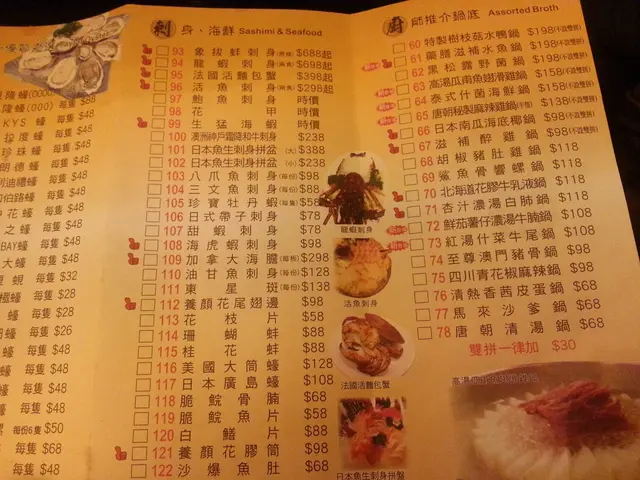 隆蠔(000) 每隻$88
KYS 蠔 每隻$48
拉度蠔 每隻$48
珍珠蠔 每隻$48
朗德蠔 每隻$48
每隻$48
伯路蠔 每隻$48
中花蠔 每隻$48
之蠔 每隻$48
BAY蠔 每隻$48
大蠔 每隻$48
蜆 每隻$32
極蠔 每隻$28
蠔 每隻$28
每隻$26
蠔 每隻$48
蠔 每隻$48
每隻$48
每份6隻$50
每隻$68
每隻$48
刺 身、海鮮 Sashimi & Seafood
93 象拔蚌刺身 $688起
94 龍蝦刺身 $698起
95 法國活麵包蟹 $398起
96 活魚刺身 $298起
97 鮑魚刺身 時價
98 花甲 時價
99 生猛海蝦 時價
100 澳洲神戶霜降和牛刺身 $238
101 日本魚生刺身拼盆 (大) $388
102 日本魚生刺身拼盆 (小) $238
103 八爪魚刺身(每份) $88
104 三文魚刺身(每份) $88
105 珍寶牡丹蝦(每隻) $58
106 日式帶子刺身 $78
107 甜蝦刺身 $78
108 海虎蝦刺身 $98
109 加拿大海膽(每板) $298
110 油甘魚刺身(每份) $128
111 東星斑(每份) $138
112 養顏花尾翅邊 $98
113 花枝片 $58
114 珊瑚蚌 $88
115 桂花蚌 $88
116 美國大筒蠔 $128
117 日本廣島蠔 $108
118 脆鯇骨腩 $68
119 脆鯇魚片 $58
120 白鱔片 $88
121 養顏花膠筒 $98
122 沙爆魚肚 $68
龍蝦刺身
活魚刺身
法國活麵包蟹
日本魚生刺身拼盤
廚 師推介鍋底 Assorted Broth
60 特製樹枝菇水鴨鍋 $198(不設雙拼)
61 藥膳滋補水魚鍋 $198(不設雙拼)
62 黑松露野菌鍋 $198(不設雙拼)
63 高湯瓜甫魚翅滑雞鍋 $158(不設雙拼)
64 泰式什菌海鮮鍋 $158(不設雙拼)
65 唐朝秘製麻辣雞鍋(半隻) $138(不設雙拼)
66 日本南瓜海底椰鍋 $98(不設雙拼)
67 滋補醉雞鍋 $98(不設雙拼)
68 胡椒豬肚雞鍋 $118
69 鯊魚骨響螺鍋 $118
70 北海道花膠牛乳液鍋 $118
71 杏汁濃湯白肺鍋 $118
72 鮮茄薯仔濃湯牛腩鍋 $108
73 紅湯什菜牛尾鍋 $108
74 至尊澳門豬骨鍋 $98
75 四川青花椒麻辣鍋 $98
76 清熱香茜皮蛋鍋 $68
77 馬來沙爹鍋 $68
78 唐朝清湯鍋 $68
雙拼一律加 $30